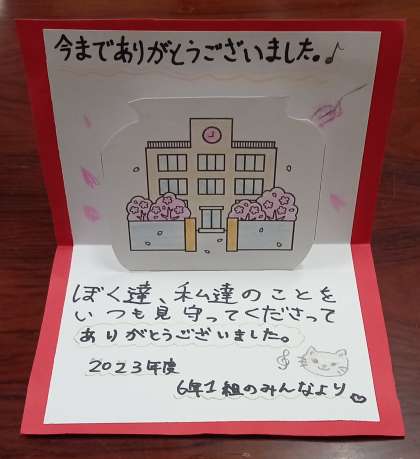 今までありがとうございました。♪
ぼく達、私達のことを
いつも見守ってくださって
ありがとうございました。
2023年度
6年1組のみんなより♡